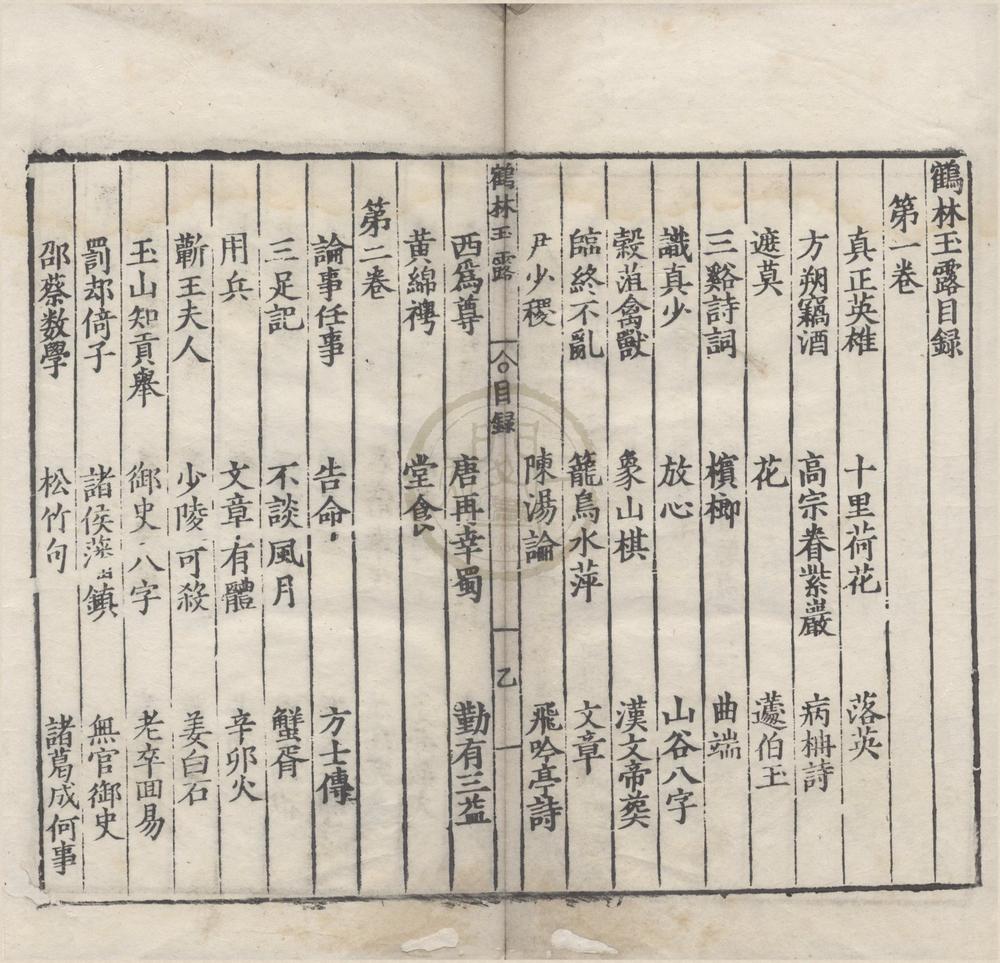 鶴林玉露目録
第一卷
真正英雄 十里荷花 落英
方朔竊酒 高宗眷紫巖 病柟詩
遮莫 花 蘧伯玉
三谿詩詞 檳榔 曲端
識真少 放心 山谷八字
穀菹禽獸 象山棋 漢文帝葬
臨終不亂 籠鳥水萍 文章
尹少稷 陳湯論 飛吟亭詩
鶴林玉露 目録 乙
西爲尊 唐再幸蜀 勤有三益
黃綿襖 堂食
第二卷
論事任事 告命 方士傳
三足記 不談風月 蟹胥
用兵 文章有體 辛卯火
蘄王夫人 少陵可殺 姜白石
玉山知貢舉 御史八字 老卒回易
罰却倚子 諸侯藩鎮 無官御史
邵蔡数學 松竹句 諸葛成何事